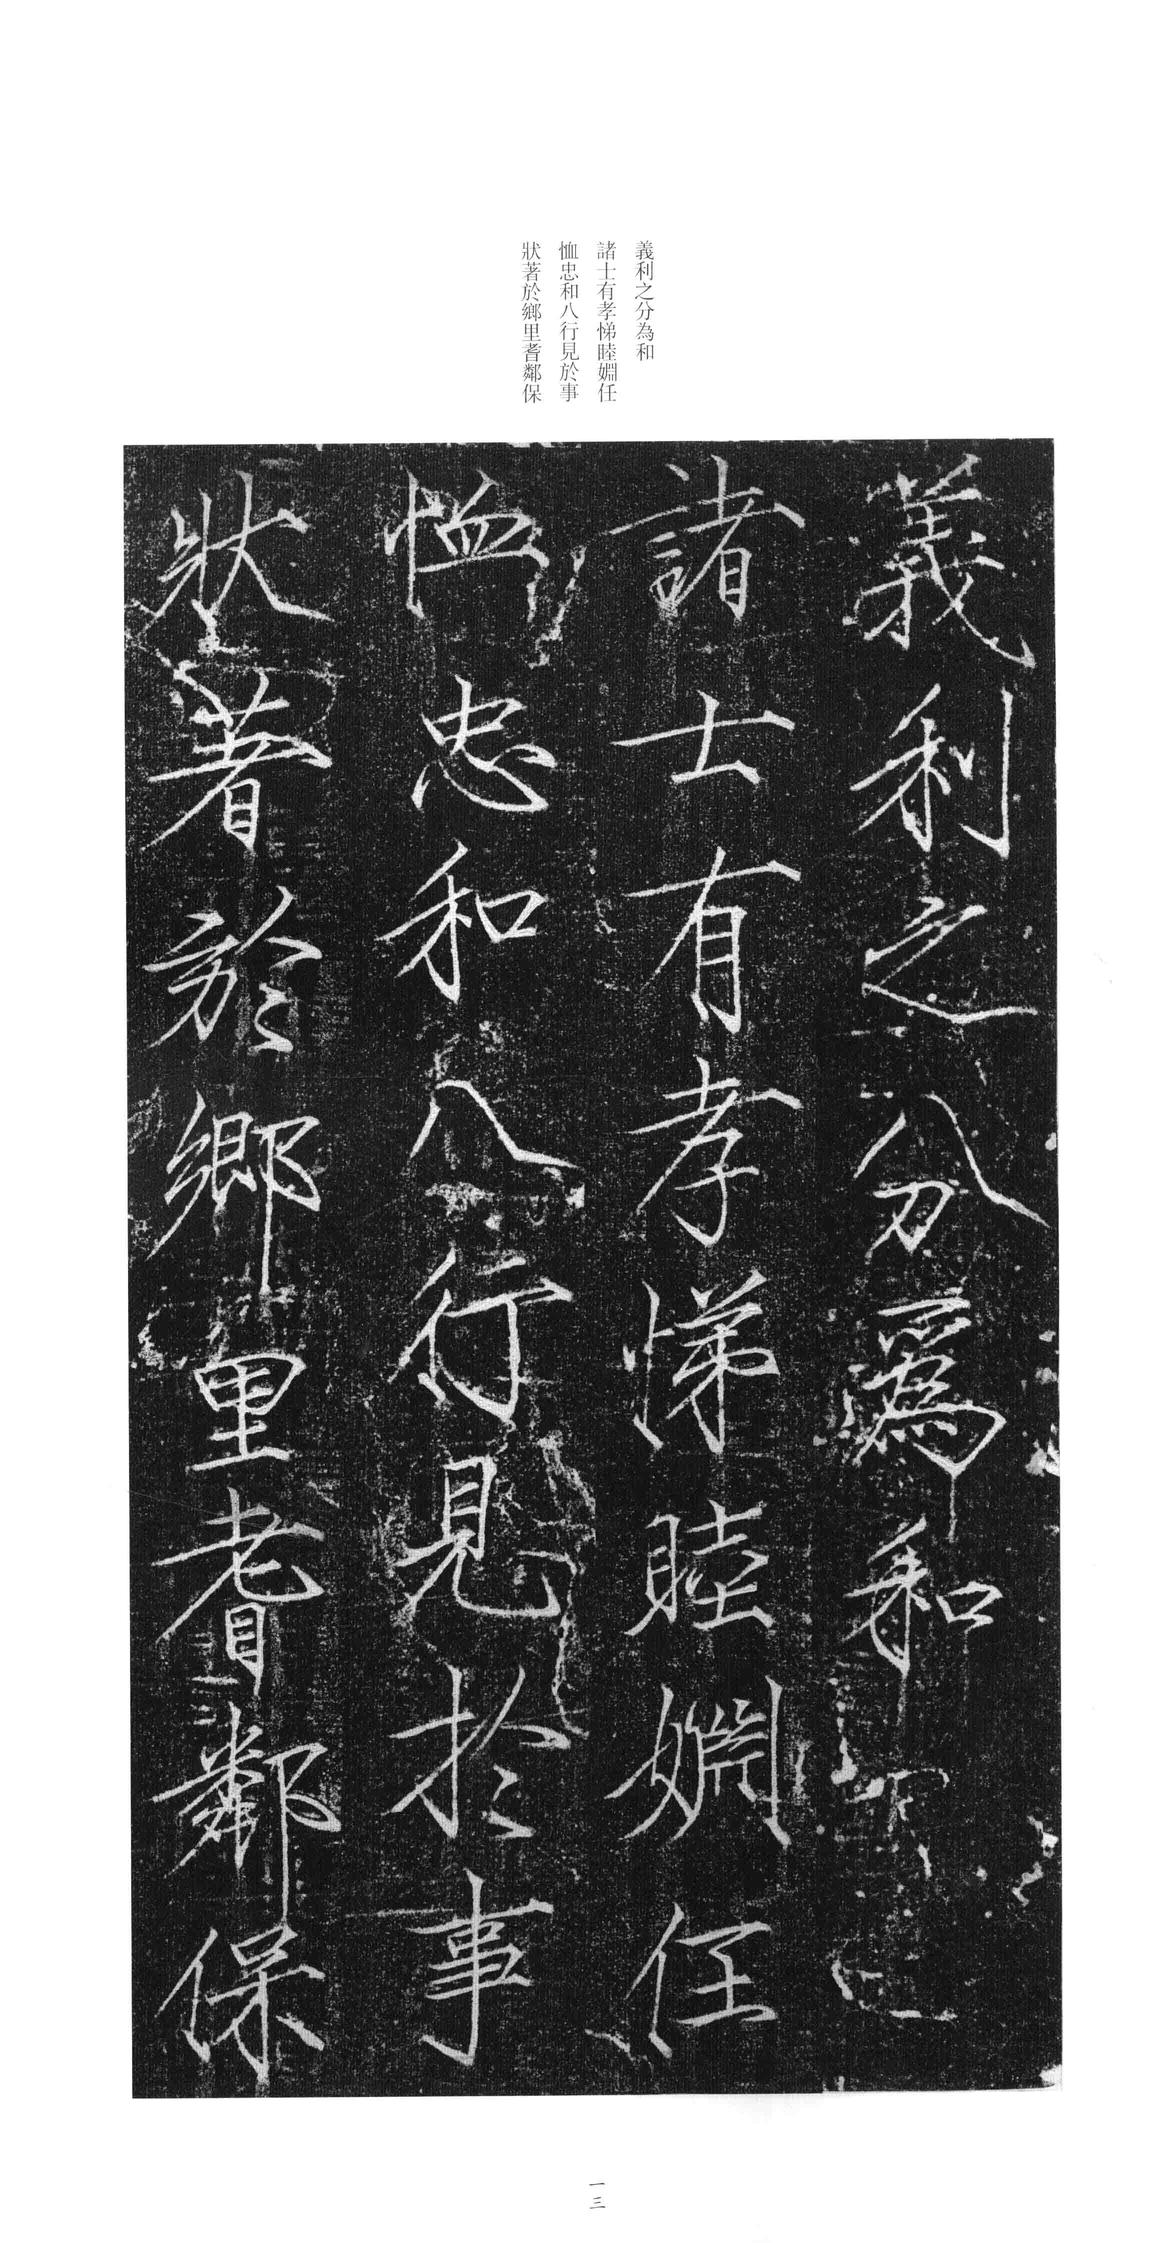 義利之分為和
諸士有孝悌睦婣任
恤忠和八行見於事
狀著於鄉里耆鄰保
義利之分爲和
諸士有孝悌睦婣任
恤忠和八行見於事
狀著於鄉里耆鄰保
一三